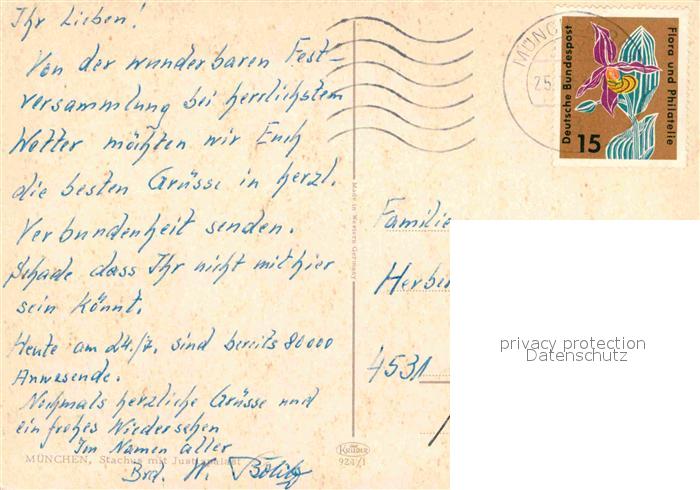 Ihr Lieben!
Von der wunderbaren Fest-
versammlung bei herrlichstem
Wetter möchten wir Euch
die besten Grüsse in herzl.
Verbundenheit senden.
Schade dass Ihr nicht mit hier
sein könnt.
Heute am 24./7. sind bereits 80000
Anwesende.
Nochmals herzliche Grüsse und
ein frohes Wiedersehen
Im Namen aller
Brd. W.
MÜNCHEN, Stachus mit Justizpalast
Made in Western Germany
KRÜGER
924/1
MÜNC
25.
Deutsche Bundespost
15
Flora und Philatelie
Familie
Herber
4531
privacy protection
Datenschutz